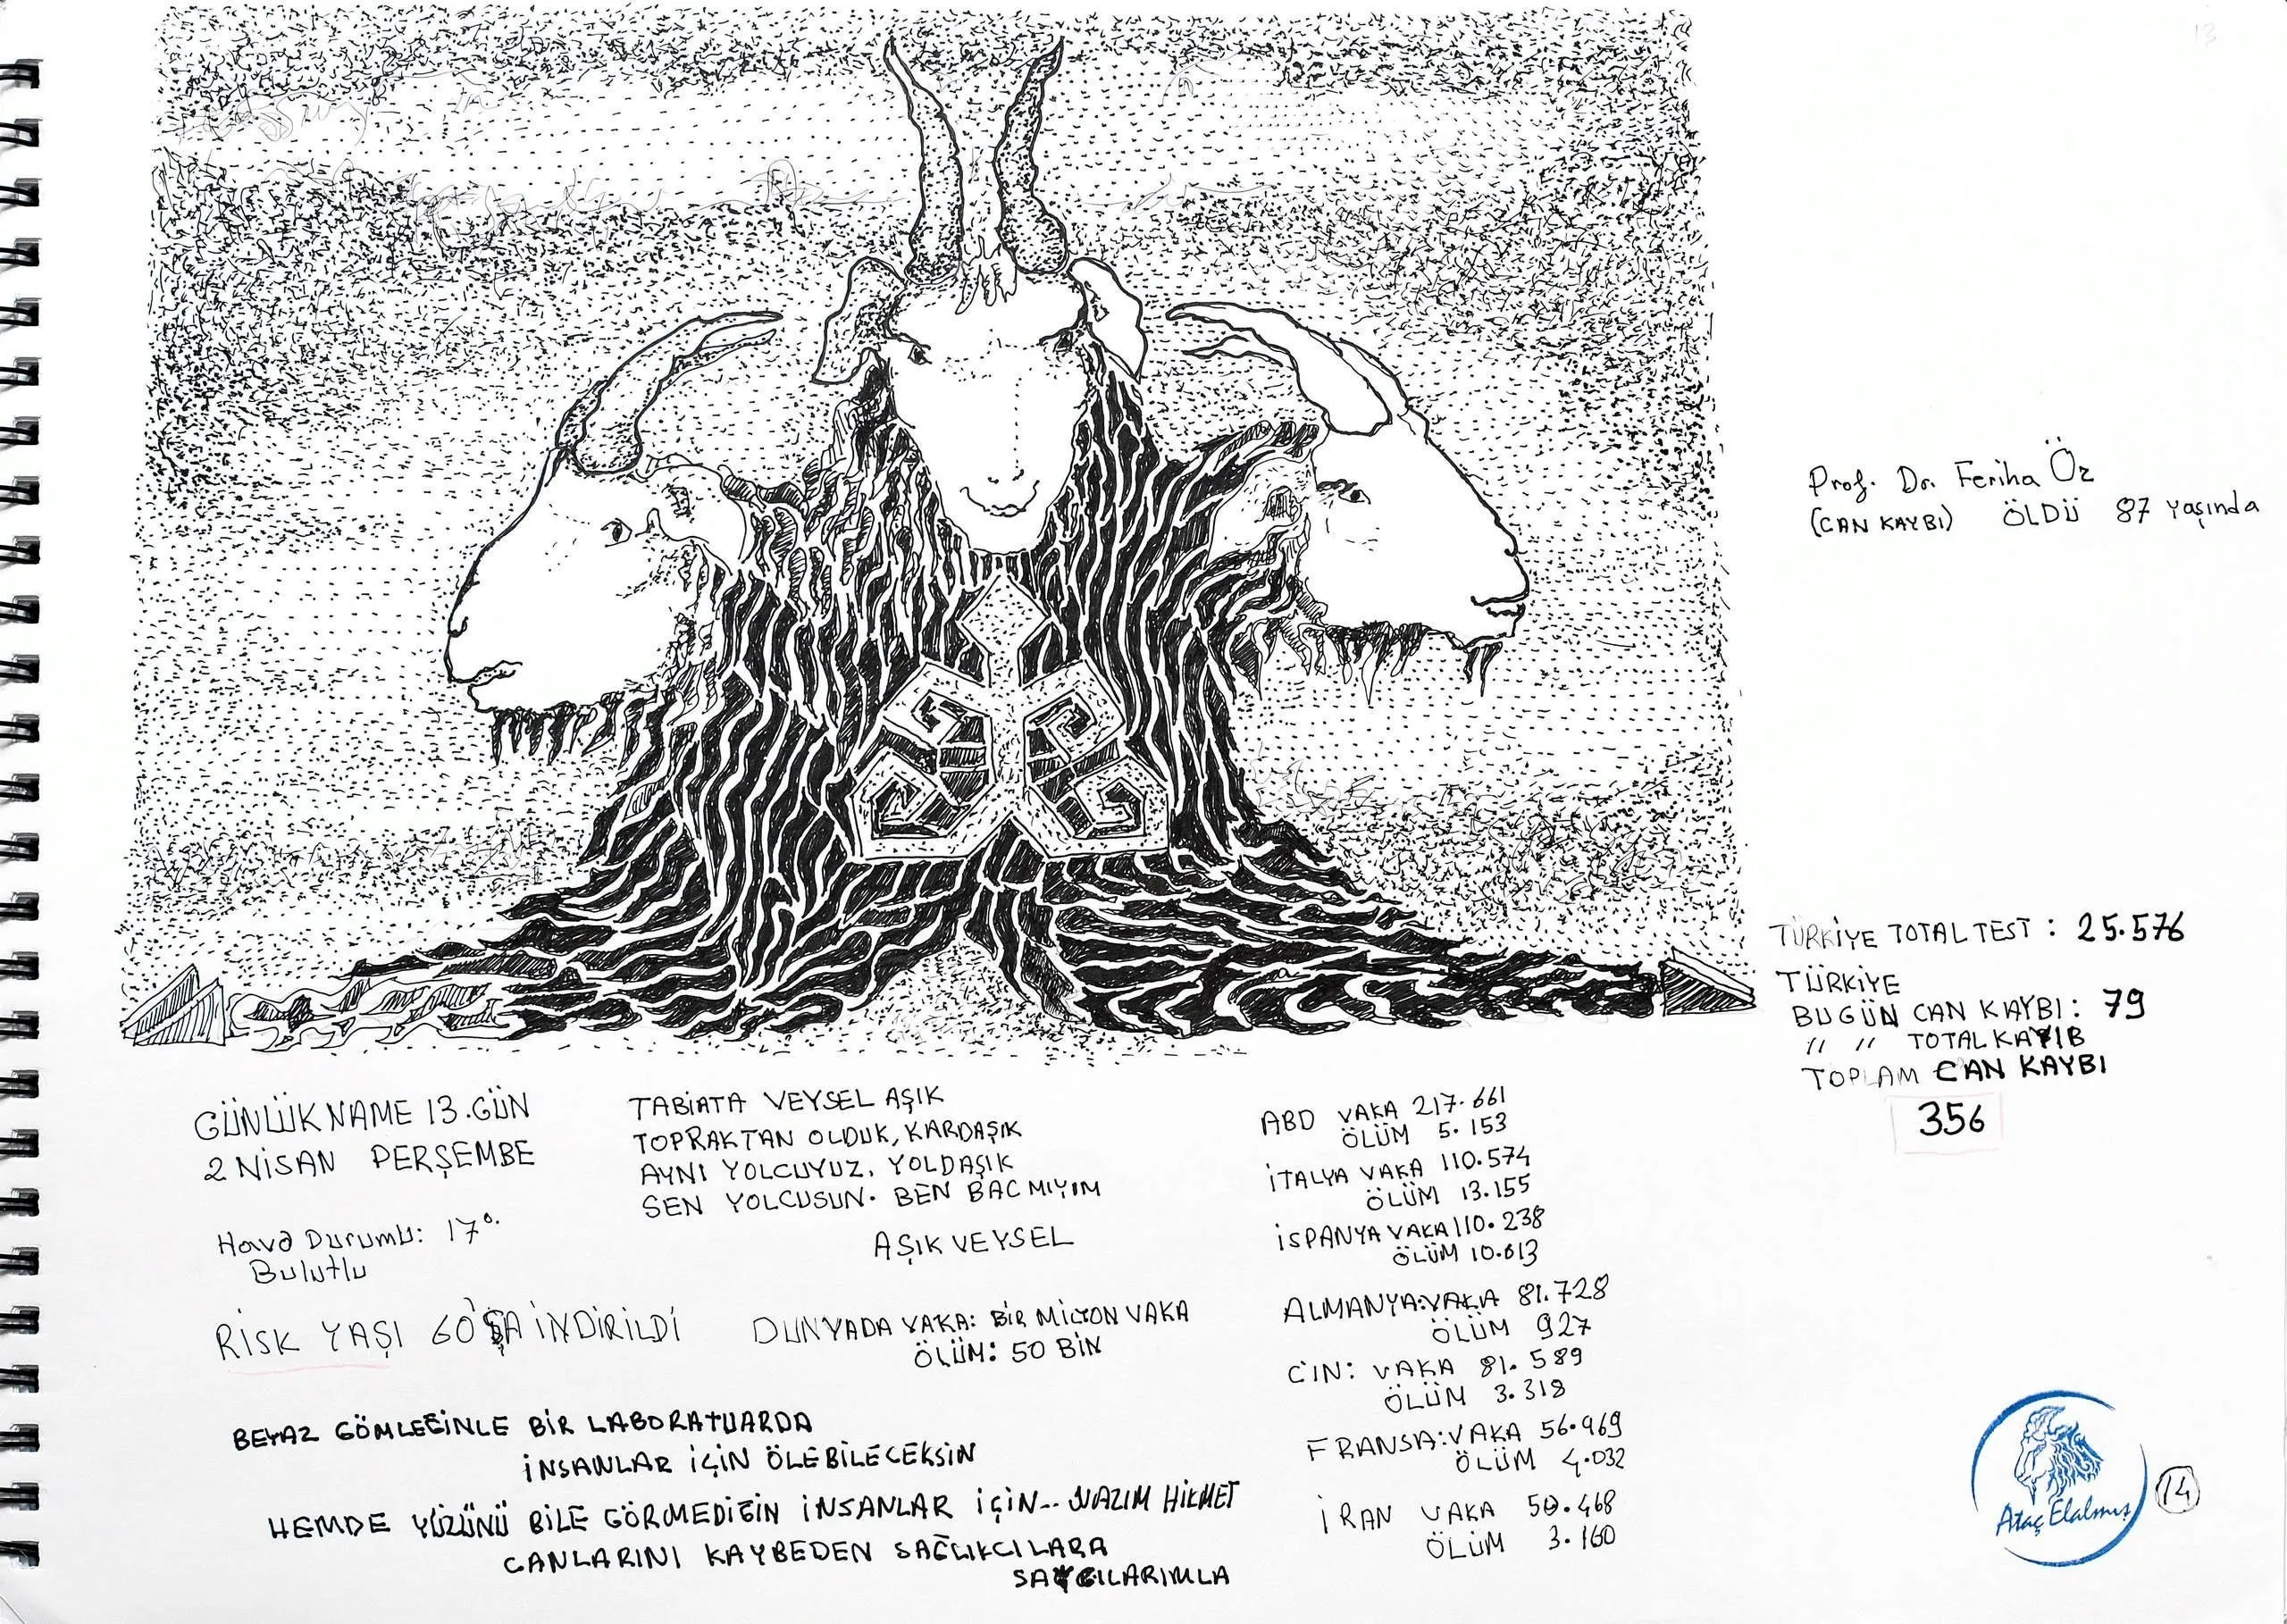 13
Prof. Dr. Feriha Öz
(CAN KAYBI) ÖLDÜ 87 yaşında
TÜRKİYE TOTAL TEST : 25.576
TÜRKİYE
BUGÜN CAN KAYBI : 79
" " TOTAL KAYIB
TOPLAM CAN KAYBI
356
GÜNLÜKNAME 13.GÜN
2 NİSAN PERŞEMBE
Hava Durumu: 17°
Bulutlu
TABİATA VEYSEL AŞIK
TOPRAKTAN OLDUK, KARDAŞIK
AYNI YOLCUYUZ. YOLDAŞIK
SEN YOLCUSUN. BEN BAC MIYIM
AŞIK VEYSEL
RİSK YAŞI 60'A İNDİRİLDİ
DUNYADA VAKA: BİR MİLYON VAKA
ÖLÜM: 50 BİN
ABD VAKA 217.661
ÖLÜM 5.153
İTALYA VAKA 110.574
ÖLÜM 13.155
İSPANYA VAKA 110.238
ÖLÜM 10.013
ALMANYA:VAKA 81.728
ÖLÜM 927
CİN: VAKA 81.589
ÖLÜM 3.318
FRANSA:VAKA 56.969
ÖLÜM 4.032
İRAN VAKA 50.468
ÖLÜM 3.160
BEYAZ GÖMLEĞİNLE BİR LABORATUARDA
İNSANLAR İÇİN ÖLEBİLECEKSİN
HEMDE YÜZÜNÜ BİLE GÖRMEDİĞİN İNSANLAR İÇİN... NAZIM HİKMET
CANLARINI KAYBEDEN SAĞLIKCILARA
SAYGILARIMLA
Ataç Elalmış
14